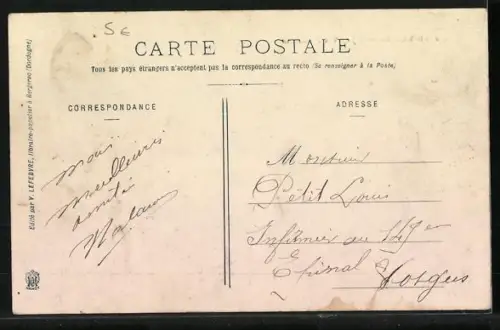 5€
CARTE POSTALE
Tous les pays étrangers n'acceptent pas la correspondance au recto (Se renseigner à la Poste)
CORRESPONDANCE
mon
meilleur
amitié
ADRESSE
Monsieur
Petit Louis
Infirmier au 149e
Epinal Vosges
Edité par V. LEFEBVRE, libraire-papetier à Bergerac (Dordogne)